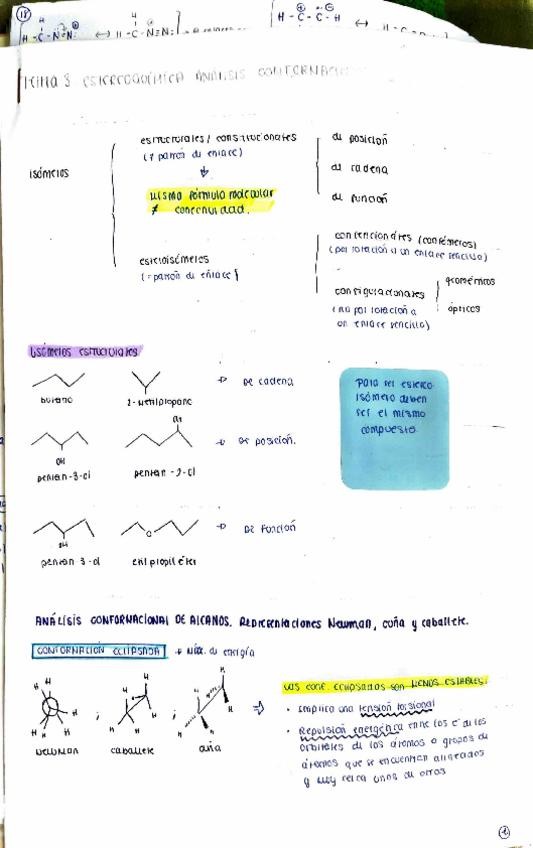 18
H - C - N≡N: ↔ H - C - N=N:
H - C - C - H ↔
TEMA 3 ESTEREOQUÍMICA ANÁLISIS CONFORMACIO
isómeros
estructurales / constitucionales
(≠ patrón de enlace)
misma fórmula molecular
≠ conectividad.
de posición
de cadena
de función
estereoisómeros
(= patrón de enlace)
conformacionales (confórmeros)
(por rotación a un enlace sencillo)
configuracionales
(no por rotación a
un enlace sencillo)
geométricos
ópticos
isómeros estructurales
butano
2-metilpropano
→ De cadena
OH
pentan-3-ol
OH
pentan-2-ol
→ De posición.
OH
pentan 3-ol
O
etil propil éter
→ De función
Para ser estereo
isómero deben
ser el mismo
compuesto.
ANÁLISIS CONFORMACIONAL DE ALCANOS. Representaciones Newman, cuña y caballete.
CONFORMACIÓN ECLIPSADA → Máx. de energía
H H H H H H
NEWMAN
;
H H H H
caballete
;
H H H H
cuña
⇒
Las conf. eclipsadas son MENOS ESTABLES.
• implica una tensión torsional
• Repulsión energética entre los e⁻ de los
orbitales de los átomos o grupos de
átomos que se encuentran alineados
y muy cerca unos de otros
1